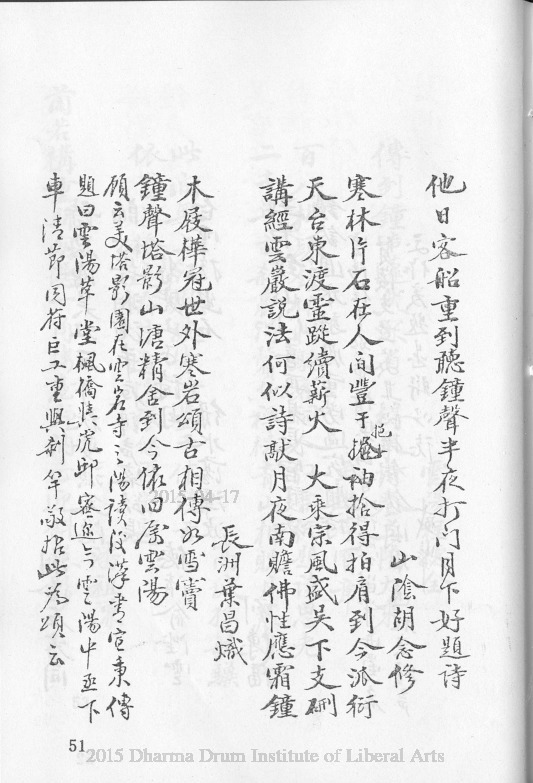 他日客船重到聽鐘聲半夜打門月下好題詩
山陰胡念修
寒林片石在人間豐干挹袖拾得拍肩到今派衍
天台東渡靈蹤續薪火 大乘宗風盛吳下支硎
講經雲巖說法何似詩敲月夜南贍佛性應霜鐘
長洲葉昌熾
木屐樺冠世外寒岩頌古相傳次雪竇
鐘聲塔影山塘精舍到今依旧為雲陽
顧云美塔影園在雲岩寺之陽讀後漢書宣秉傳
題曰雲陽草堂楓僑與虎邱密邇今雲陽中丞下
車清節同符巨工重興剎竿敬拈此為頌云
51
2015-04-17
2015 Dharma Drum Institute of Liberal Arts